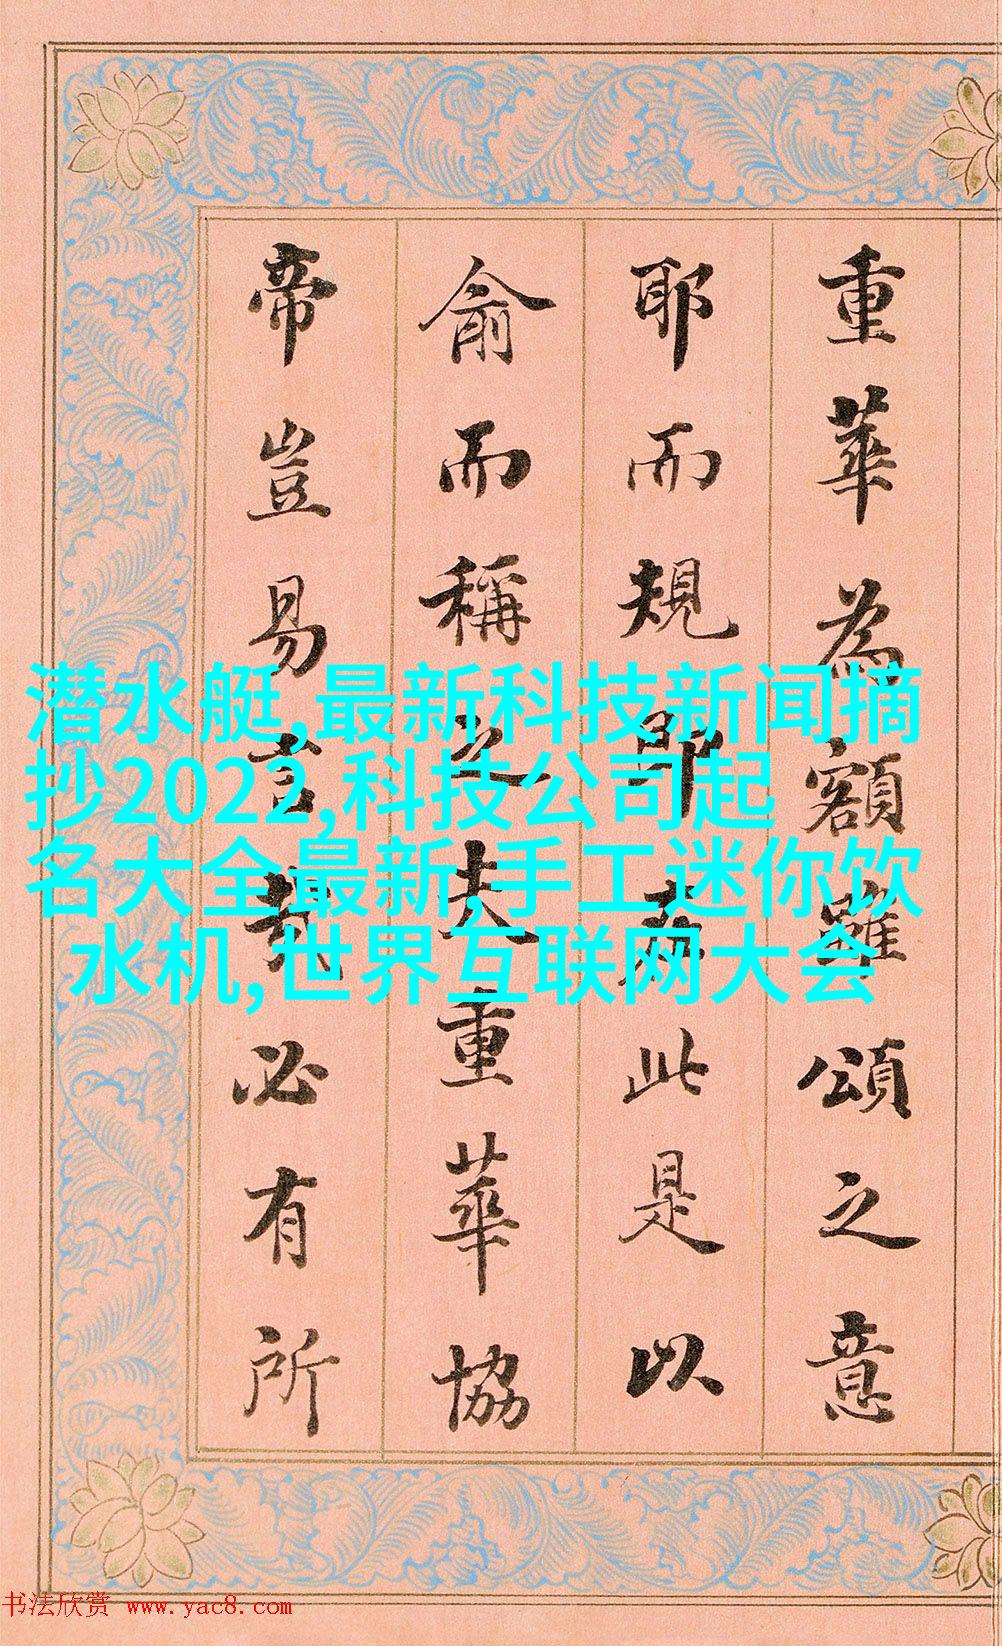 重華為額雖頌之意
耶而規即此是以
俞而稱之夫重華協
帝豈易言哉必有所
潜水艇,最新科技新闻摘
抄2022,科技公司起
名大全最新,手工迷你饮
水机,世界互联网大会
书法欣赏 www.yac8.com